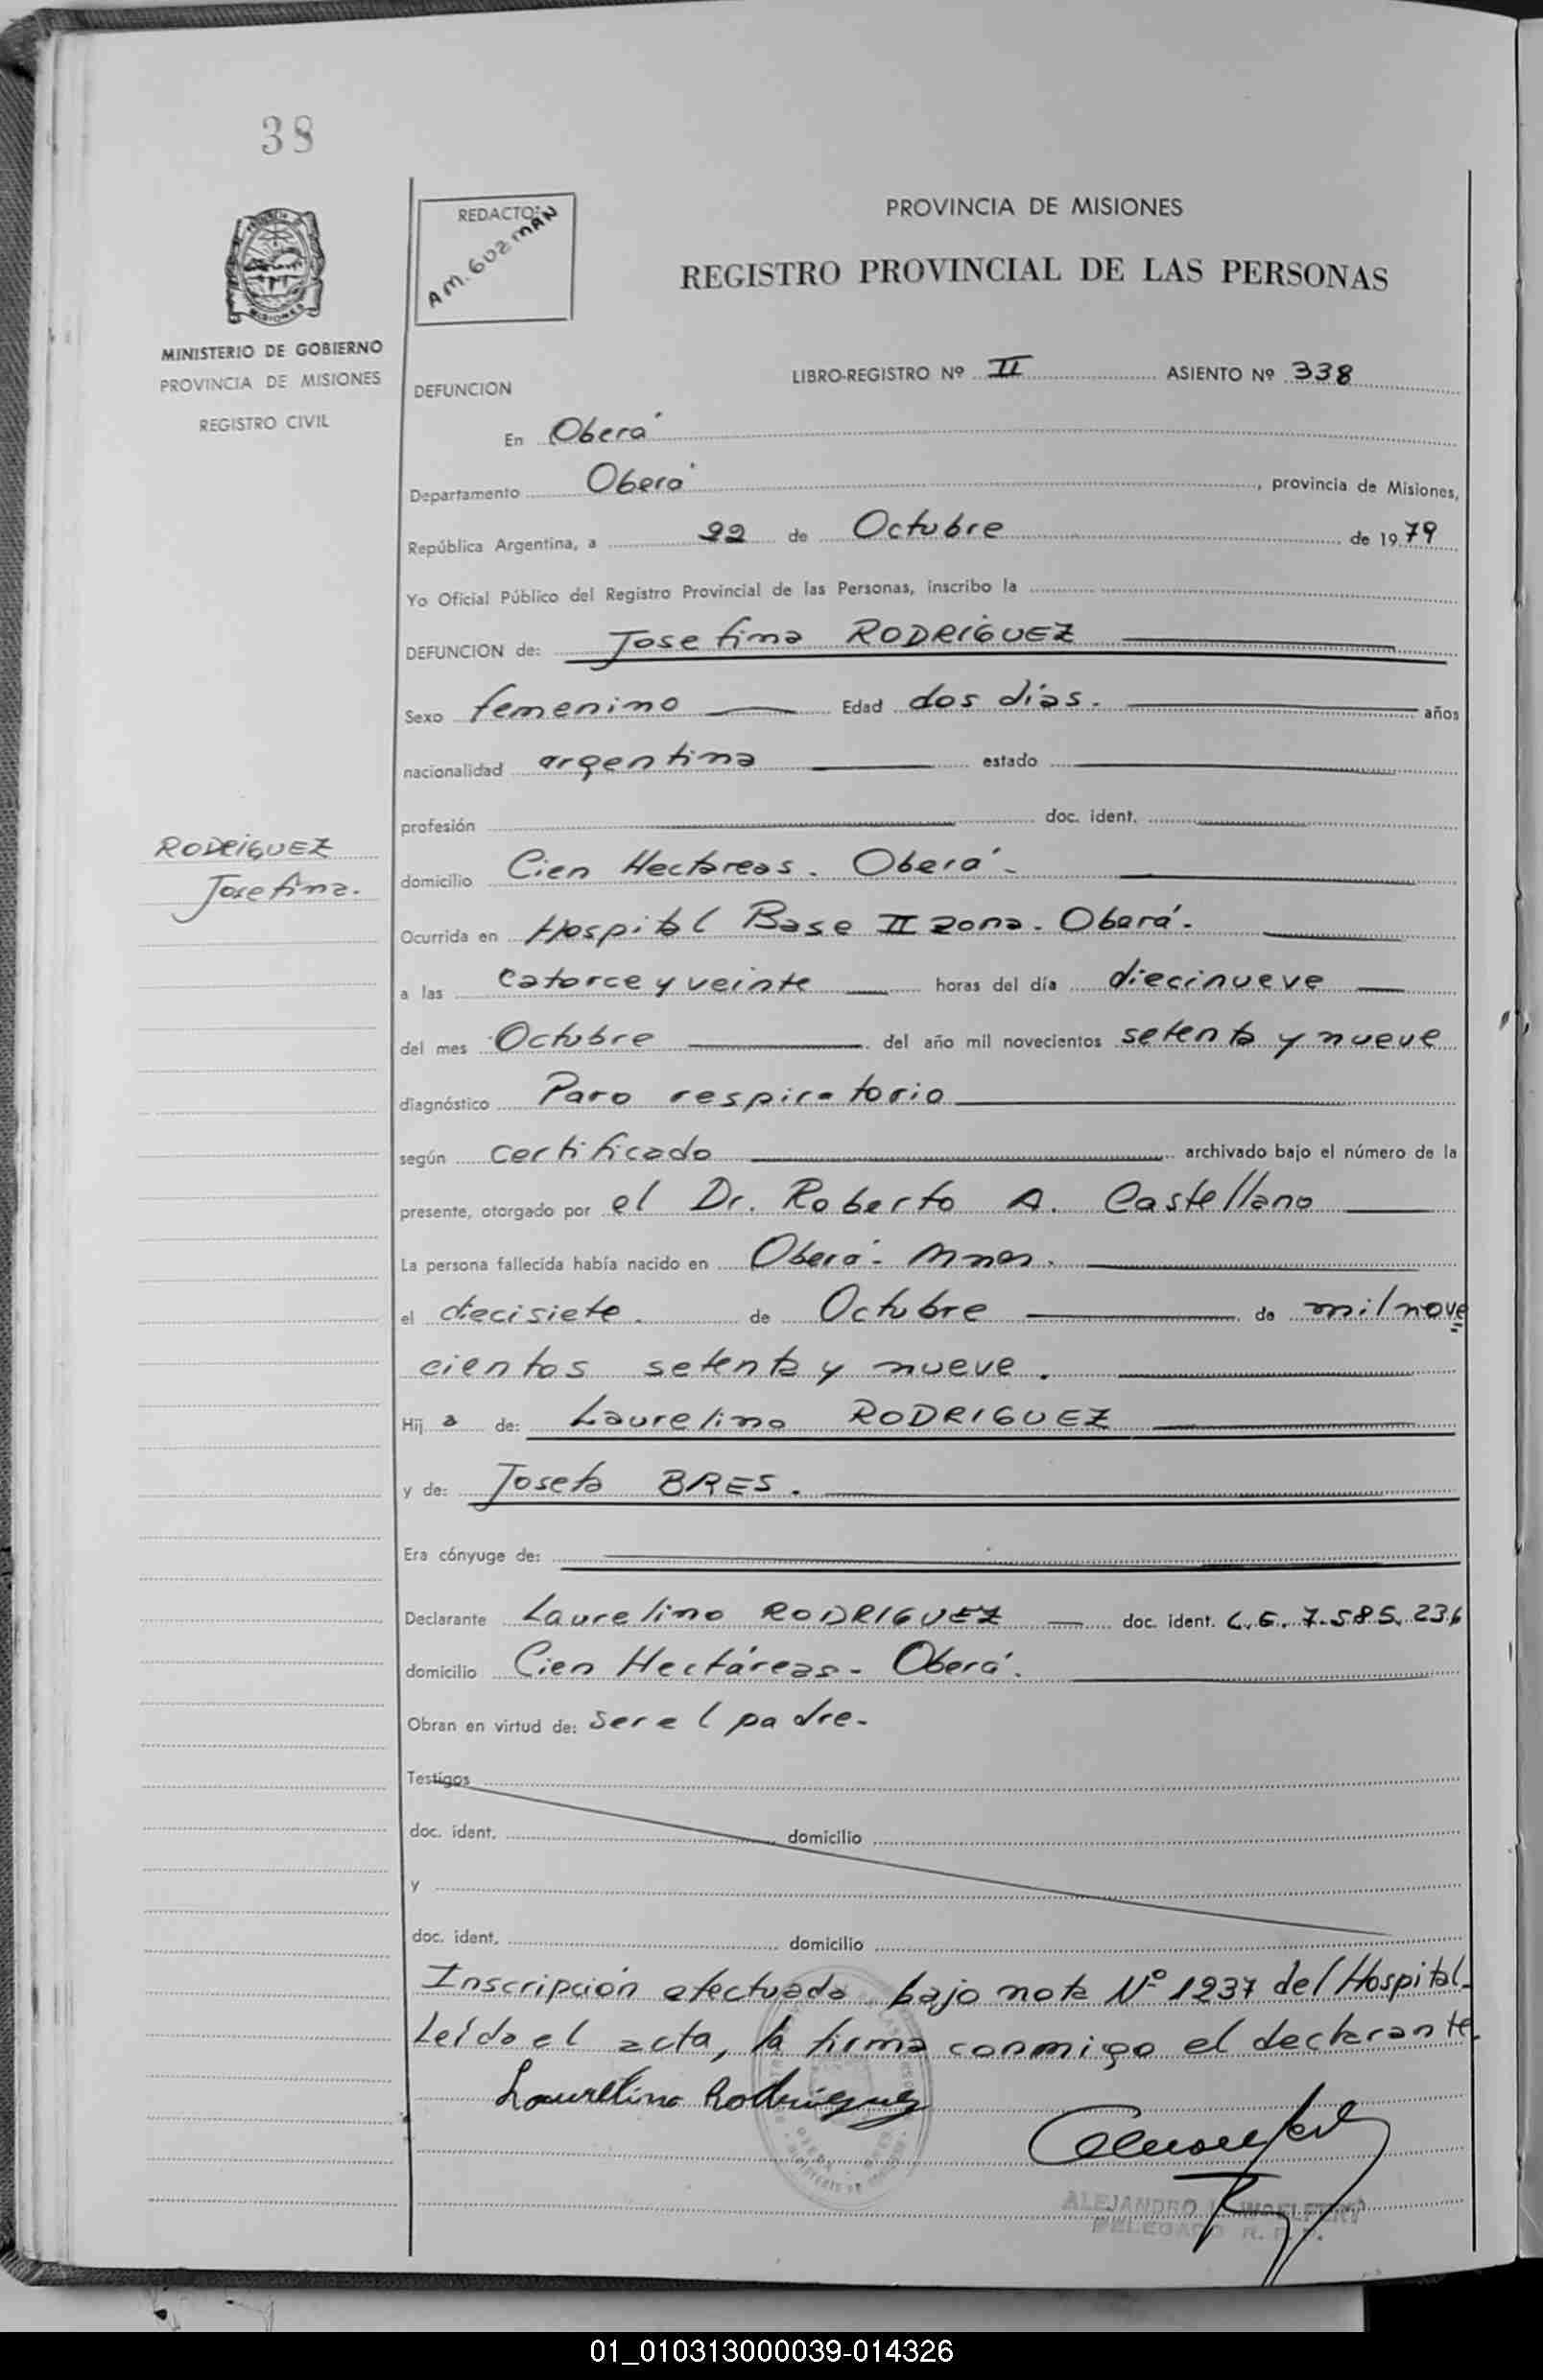 38
REDACTO:
A M. GUZMAN
PROVINCIA DE MISIONES
REGISTRO PROVINCIAL DE LAS PERSONAS
MISIONES
MINISTERIO DE GOBIERNO
PROVINCIA DE MISIONES
REGISTRO CIVIL
DEFUNCION
LIBRO-REGISTRO Nº II ASIENTO Nº 338
En Oberá
Departamento Oberá, provincia de Misiones,
República Argentina, a 22 de Octubre de 1979
Yo Oficial Público del Registro Provincial de las Personas, inscribo la
DEFUNCION de: Josefina RODRIGUEZ
Sexo femenino Edad dos días. años
nacionalidad argentina estado
profesión doc. ident.
RODRIGUEZ
Josefina.
domicilio Cien Hectareas. Oberá-
Ocurrida en Hospital Base II zona. Oberá-
a las catorce y veinte horas del día diecinueve
del mes Octubre del año mil novecientos setenta y nueve
diagnóstico Paro respiratorio
según certificado archivado bajo el número de la
presente, otorgado por el Dr. Roberto A. Castellano
La persona fallecida había nacido en Oberá- Mnes.
el diecisiete. de Octubre de mil nove
cientos setenta y nueve.
Hij a de: Laurelino RODRIGUEZ
y de: Josefa BRES.
Era cónyuge de:
Declarante Laurelino RODRIGUEZ doc. ident. L. E. 7.585.236
domicilio Cien Hectáreas- Oberá.
Obran en virtud de: ser el padre-
Testigos
doc. ident. domicilio
y
doc. ident. domicilio
Inscripción efectuada bajo nota Nº 1237 del Hospital-
Leída el acta, la firma conmigo el declarante.
Laurelino Rodriguez
ALEJANDRO WOELFERT
DELEGADO R. P. P.
01_010313000039-014326